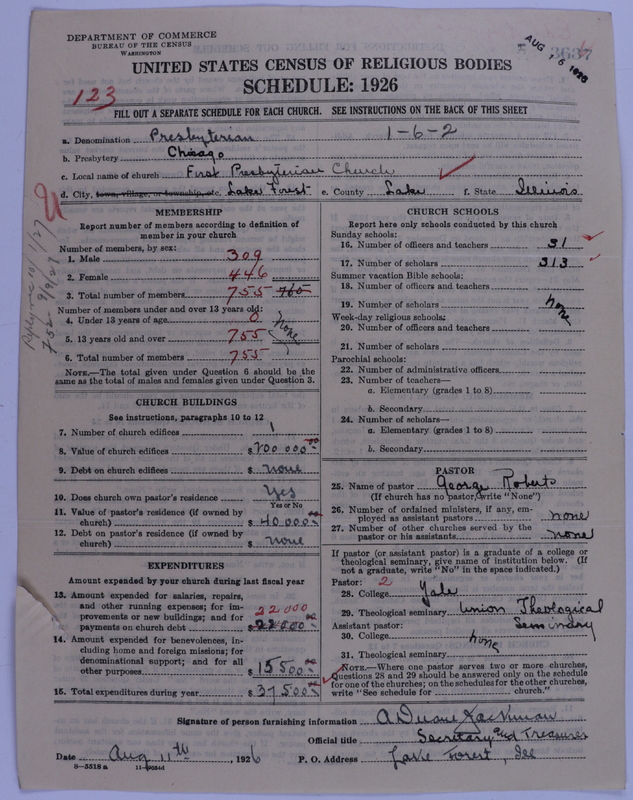 DEPARTMENT OF COMMERCE
BUREAU OF THE CENSUS
WASHINGTON
AUG 16 1926
3637
UNITED STATES CENSUS OF RELIGIOUS BODIES
SCHEDULE: 1926
123
FILL OUT A SEPARATE SCHEDULE FOR EACH CHURCH. SEE INSTRUCTIONS ON THE BACK OF THIS SHEET
a. Denomination Presbyterian 1-6-2
b. Presbytery Chicago
c. Local name of church First Presbyterian Church
d. City, town, village, or township, etc. Lake Forest e. County Lake f. State Illinois
MEMBERSHIP
Report number of members according to definition of
member in your church
Number of members, by sex:
1. Male 309
2. Female 446
3. Total number of members 755 760
Number of members under and over 13 years old:
4. Under 13 years of age 0 none
5. 13 years old and over 755
6. Total number of members 755
NOTE.—The total given under Question 6 should be the
same as the total of males and females given under Question 3.
CHURCH BUILDINGS
See instructions, paragraphs 10 to 12
7. Number of church edifices 1
8. Value of church edifices $ 200 000.00
9. Debt on church edifices $ none
10. Does church own pastor's residence Yes
Yes or No
11. Value of pastor's residence (if owned by
church) $ 40,000.00
12. Debt on pastor's residence (if owned by
church) $ none
EXPENDITURES
Amount expended by your church during last fiscal year
13. Amount expended for salaries, repairs,
and other running expenses; for im-
provements or new buildings; and for
payments on church debt 22000
$ 22000.00
14. Amount expended for benevolences, in-
cluding home and foreign missions; for
denominational support; and for all
other purposes $ 15500.00
15. Total expenditures during year $ 37500.00
CHURCH SCHOOLS
Report here only schools conducted by this church
Sunday schools:
16. Number of officers and teachers 31
17. Number of scholars 313
Summer vacation Bible schools:
18. Number of officers and teachers
19. Number of scholars none
Week-day religious schools:
20. Number of officers and teachers
21. Number of scholars
Parochial schools:
22. Number of administrative officers
23. Number of teachers—
a. Elementary (grades 1 to 8)
b. Secondary
24. Number of scholars—
a. Elementary (grades 1 to 8)
b. Secondary
PASTOR
25. Name of pastor George Roberts
(If church has no pastor, write "None")
26. Number of ordained ministers, if any, em-
ployed as assistant pastors none
27. Number of other churches served by the
pastor or his assistants none
If pastor (or assistant pastor) is a graduate of a college or
theological seminary, give name of institution below. (If
not a graduate, write "No" in the space indicated.)
Pastor: 2
28. College Yale
29. Theological seminary Union Theological
Seminary
Assistant pastor:
30. College none
31. Theological seminary
NOTE.—Where one pastor serves two or more churches,
Questions 28 and 29 should be answered only on the schedule
for one of the churches; on the schedules for the other churches,
write "See schedule for church."
Signature of person furnishing information A Duane Jackman
Official title Secretary and Treasurer
Date Aug 11th, 1926 P. O. Address Lake Forest, Ill
8-5518 a